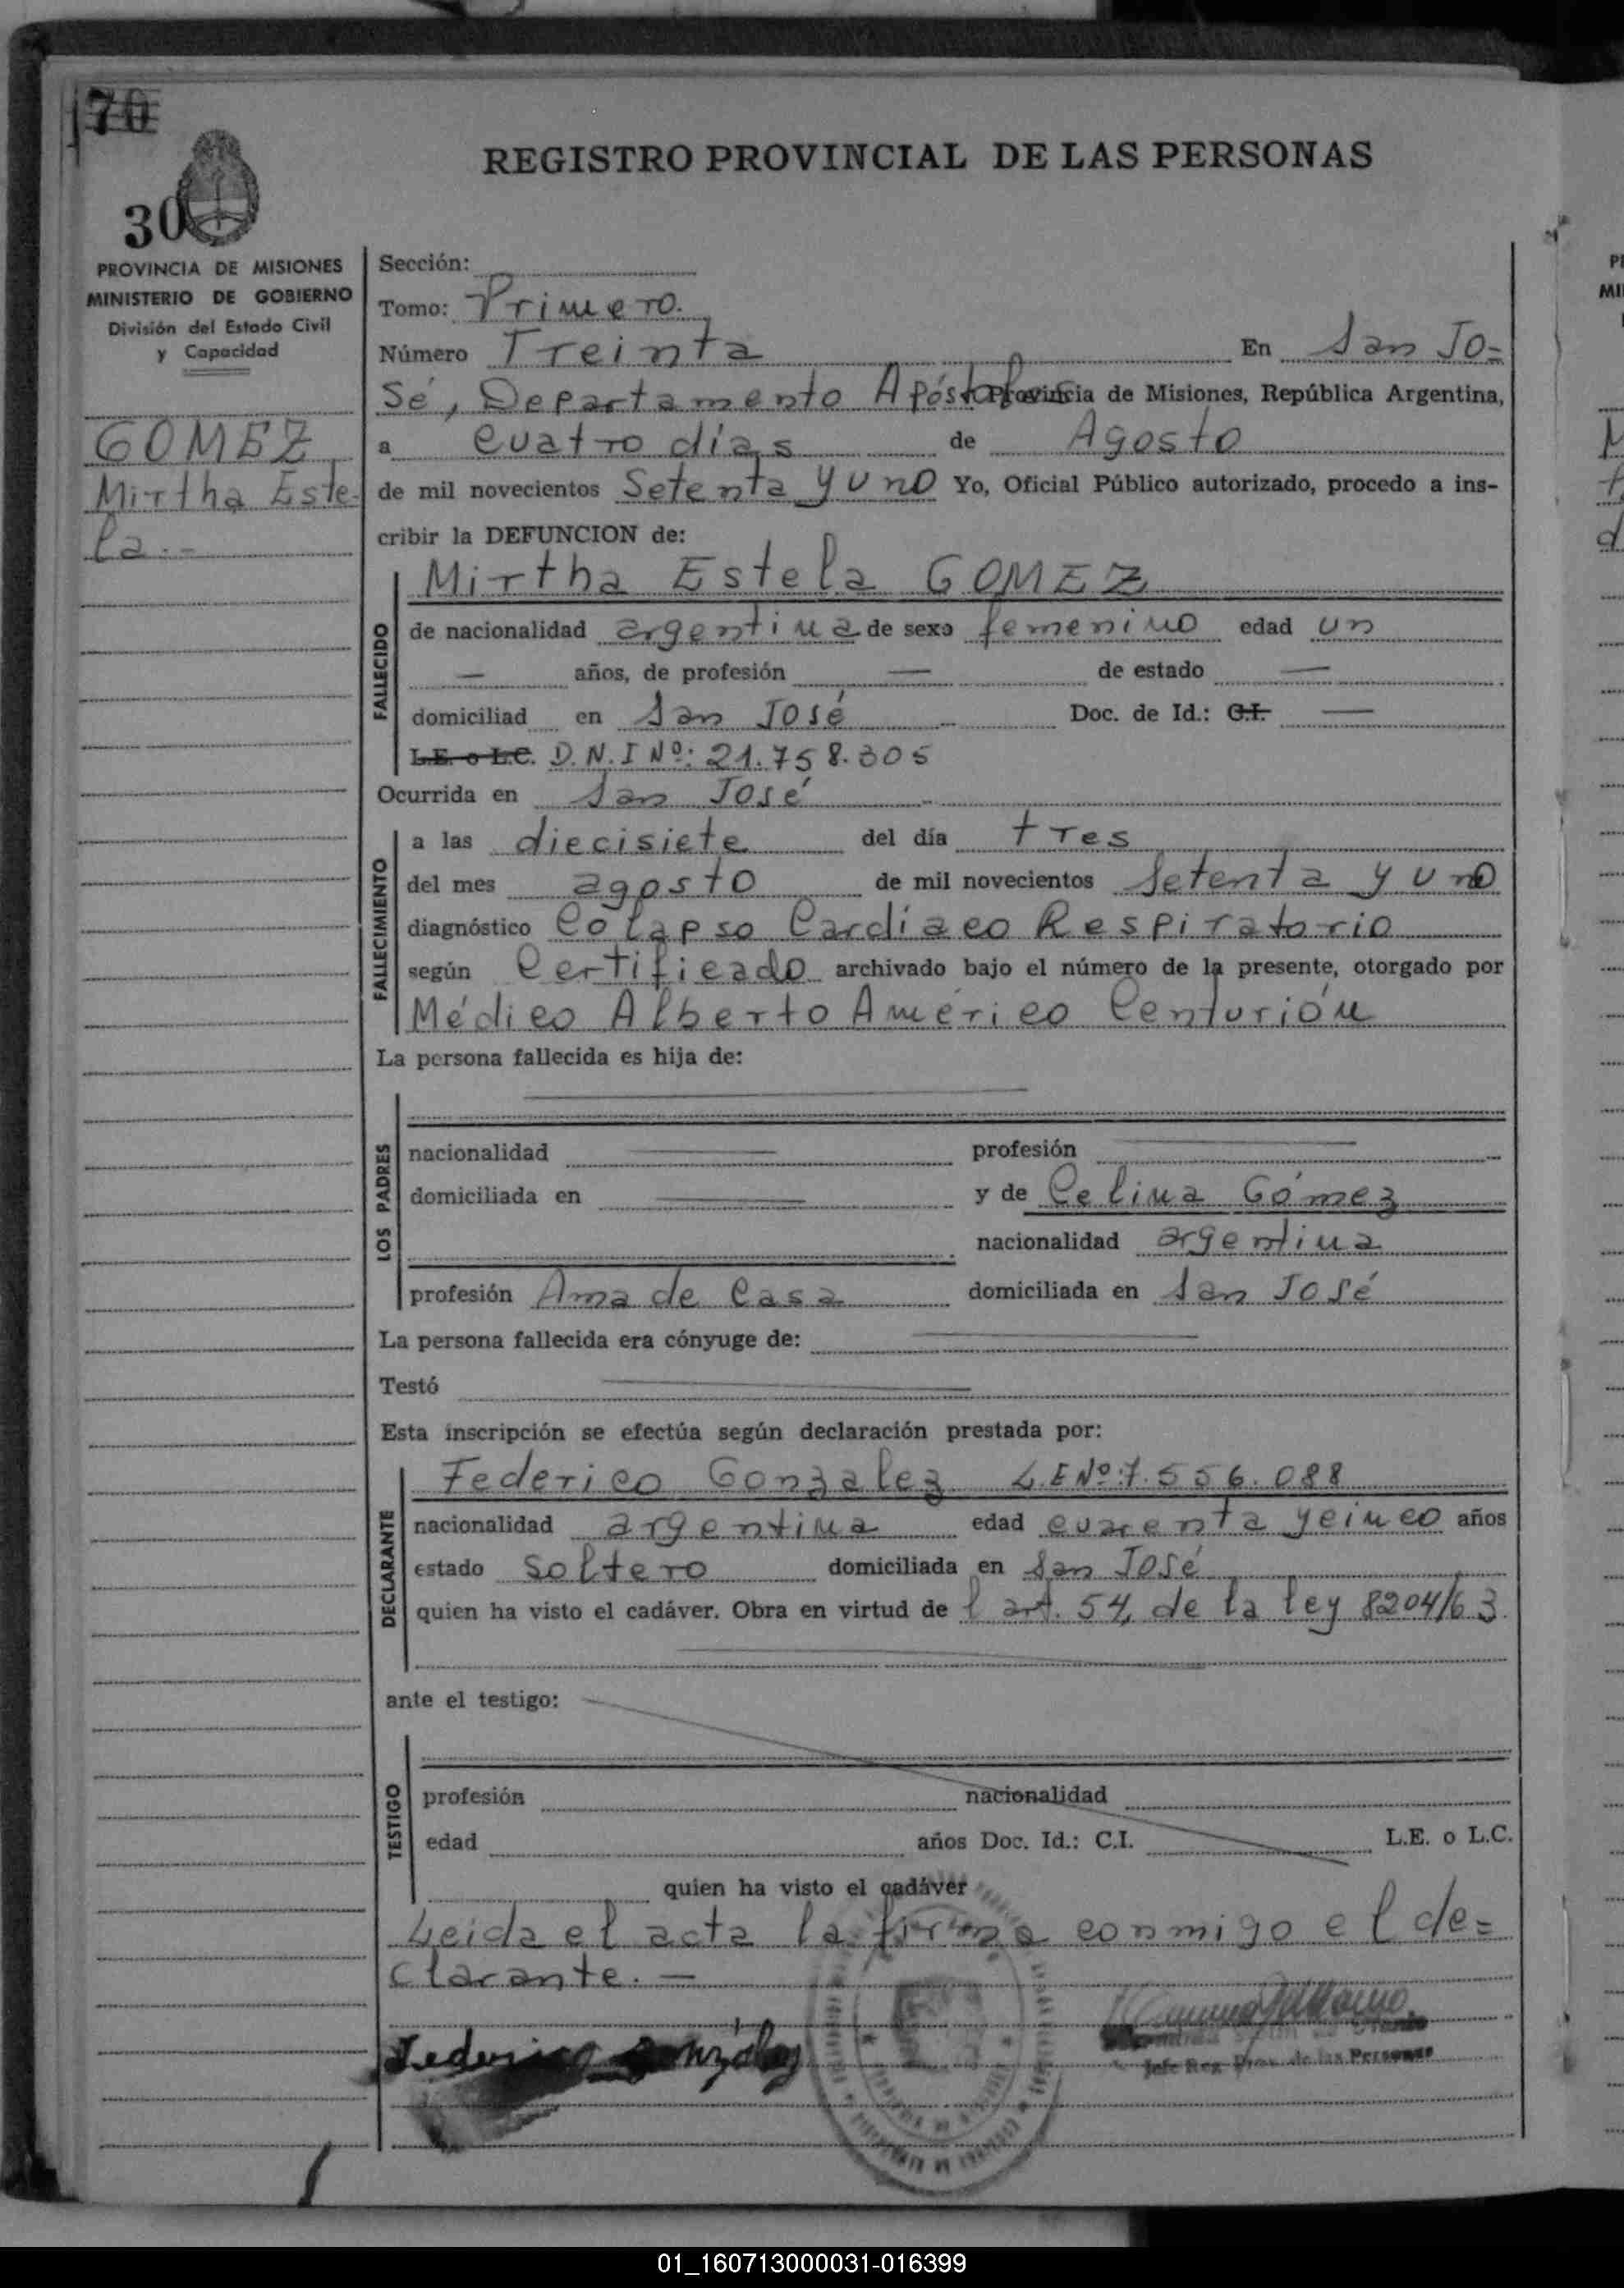 170
REGISTRO PROVINCIAL DE LAS PERSONAS
30
PROVINCIA DE MISIONES
MINISTERIO DE GOBIERNO
División del Estado Civil
y Capacidad
GOMEZ
Mirtha Este-
la.-
Sección:
Tomo: Primero.
Número Treinta En San Jo=
sé, Departamento Apóstoles Provincia de Misiones, República Argentina,
a cuatro días de Agosto
de mil novecientos Setenta y uno Yo, Oficial Público autorizado, procedo a ins-
cribir la DEFUNCION de:
Mirtha Estela GOMEZ
FALLECIDO
de nacionalidad argentina de sexo femenino edad un
— años, de profesión — de estado —
domiciliad en San José Doc. de Id.: C.I. —
L.E. o L.C. D.N.I Nº: 21.758.305
Ocurrida en San José
FALLECIMIENTO
a las diecisiete del día tres
del mes agosto de mil novecientos setenta y uno
diagnóstico Colapso Cardíaco Respiratorio
según Certificado archivado bajo el número de la presente, otorgado por
Médico Alberto Américo Centurión
La persona fallecida es hija de:
LOS PADRES
nacionalidad profesión
domiciliada en y de Celina Gómez
nacionalidad argentina
profesión Ama de Casa domiciliada en San José
La persona fallecida era cónyuge de:
Testó
Esta inscripción se efectúa según declaración prestada por:
DECLARANTE
Federico Gonzalez L.E Nº:7.556.088
nacionalidad argentina edad cuarenta y cinco años
estado soltero domiciliada en San José
quien ha visto el cadáver. Obra en virtud de l art. 54, de la ley 8204/63.
ante el testigo:
TESTIGO
profesión nacionalidad
edad años Doc. Id.: C.I. L.E. o L.C.
quien ha visto el cadáver
Leida el acta la firma conmigo el de=
clarante. —
Federico Gonzalez
Jefe Reg. Prov. de las Personas
01_160713000031-016399